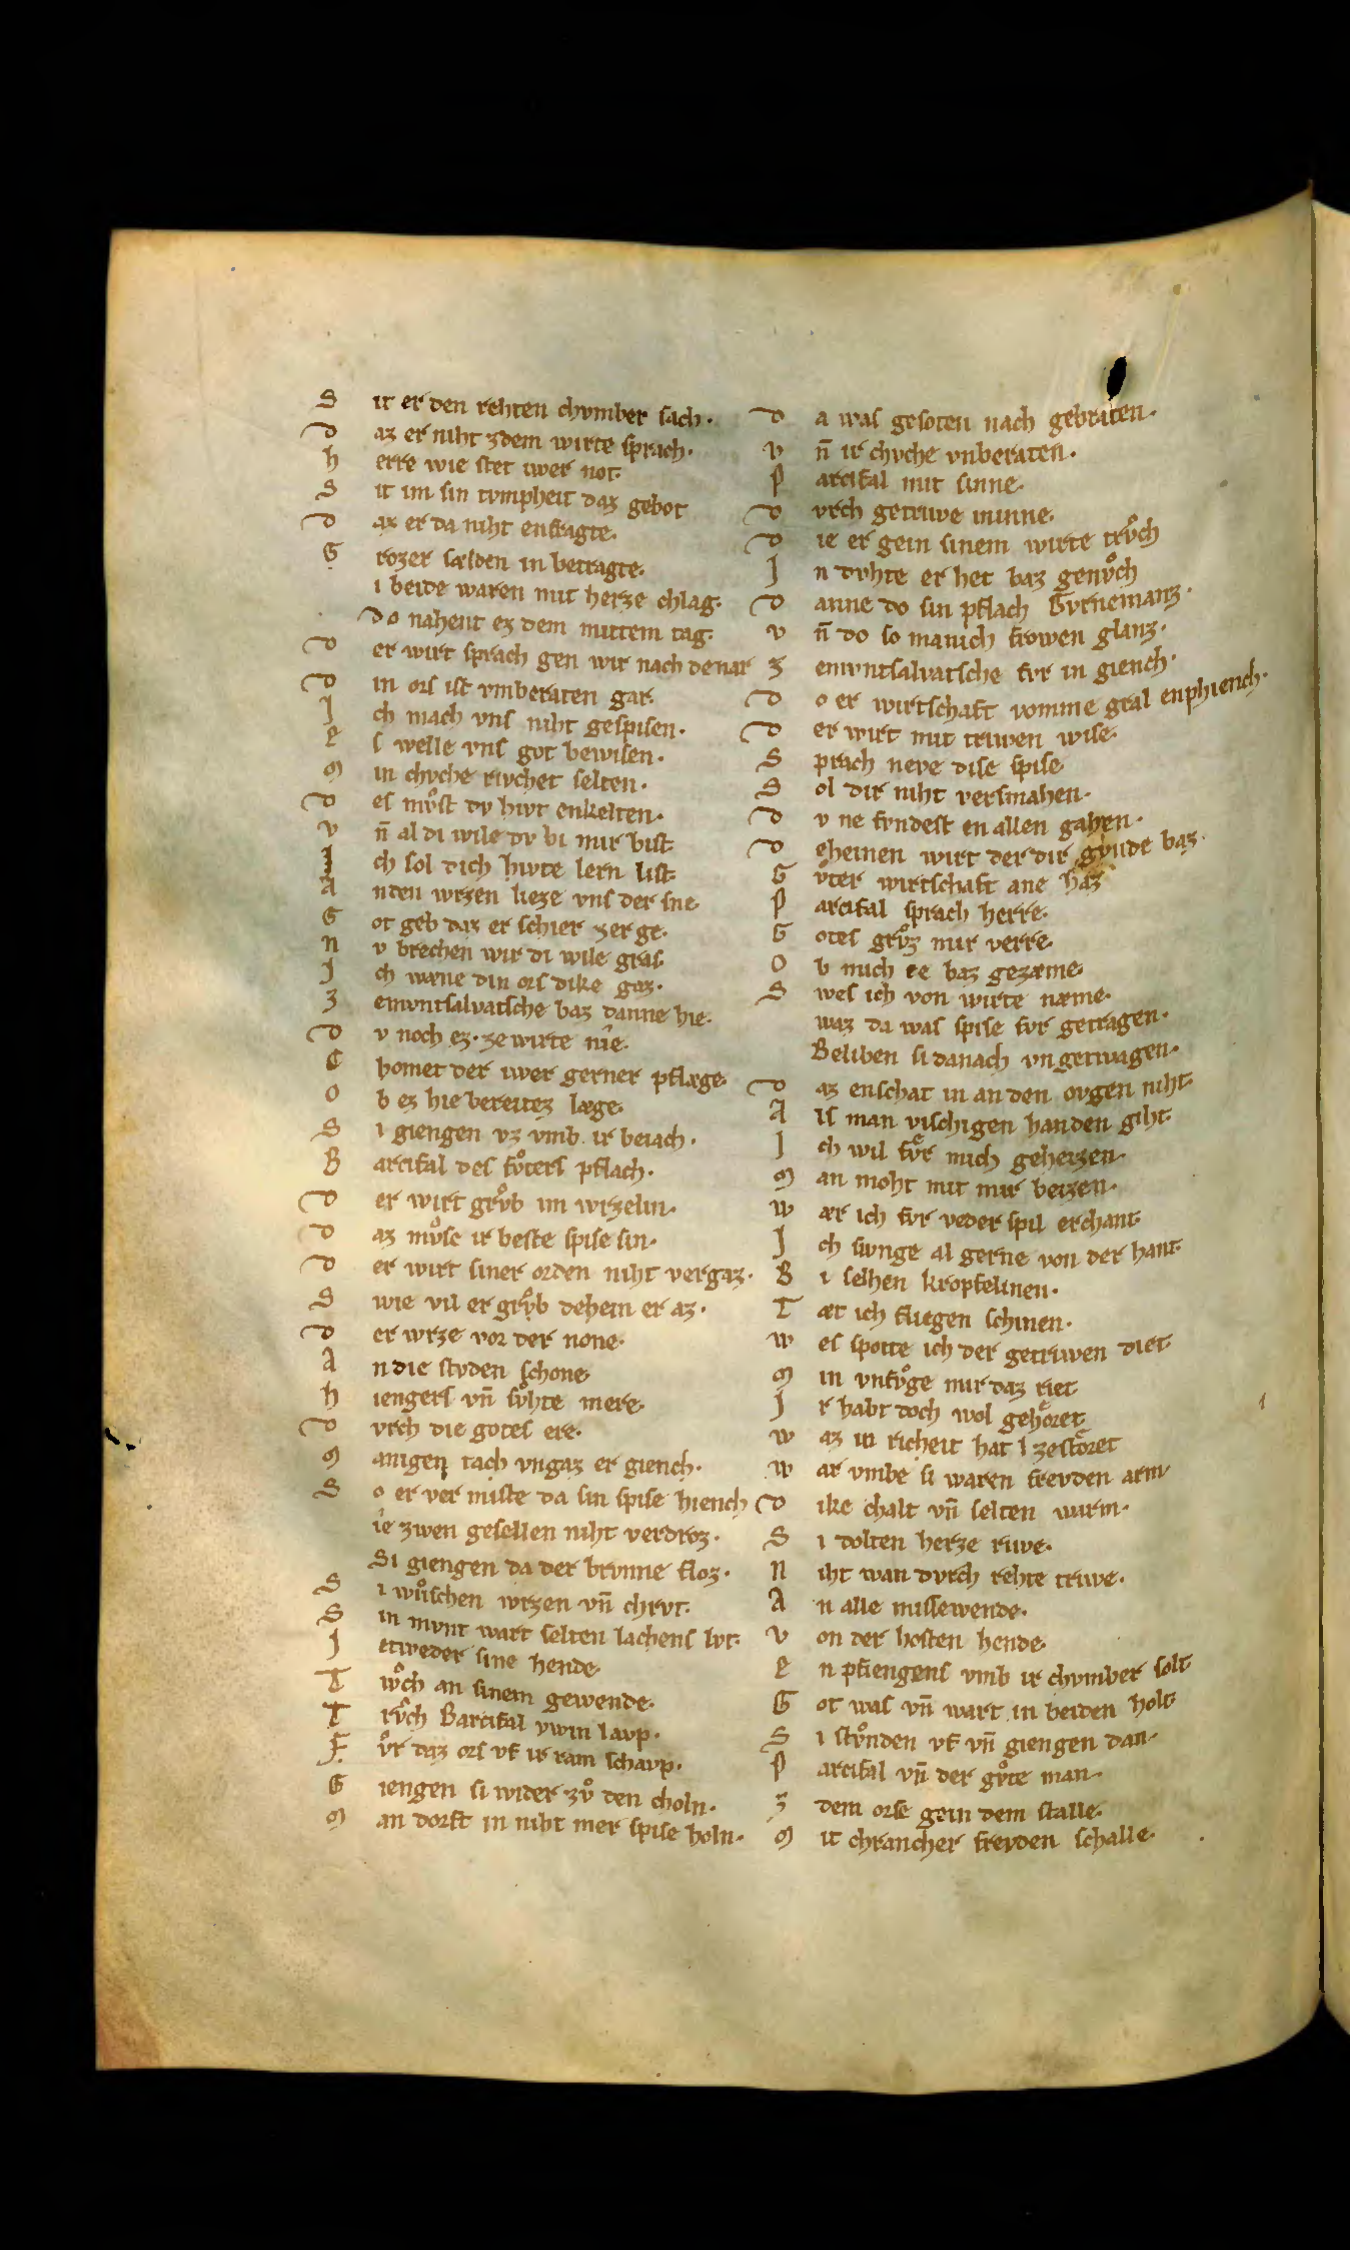 S it er den rehten chvmber sach·
D az er niht zdem wirte sprach·
h erre wie stet iwer not·
S it im sin tvmpheit daz gebot
D az er da niht enfragte·
G rozer sælden in betragte·
i beide waren mit herze chlag·
Do nahent ez dem mittem tag·
D er wirt sprach gen wir nach der nar
D in ors ist vnberaten gar·
J ch mach vns niht gespisen·
E s welle vns got bewisen·
M in chvche rivchet selten·
D es mvͦst dv hivt enkelten·
V n̄ al di wile dv bi mir bist
J ch sol dich hivte lern list
A nden wrzen lieze vns der sne
G ot geb daz er schier zerge·
N v brechen wir di wile gras
J ch wæne din ors dike gaz·
Z emvntsalvatsche baz danne hie·
D v noch ez· ze wirte nîe·
C homet der iwer gerner pflæge·
O b ez hie bereitez læge·
S i giengen vz vmb ir beiach·
B arcifal des fvͦters pflach·
D er wirt grvͦb im wrzelin·
D az mvͦse ir beste spise sin·
D er wirt siner orden niht vergaz·
S wie vil er grvͦb dehein er az·
D er wrze vor der none·
A n die stvden schone
h iengers vn̄ svͦhte mere·
D vrch die gotes ere·
M anigen tach vngaz er giench·
S o er ver miste da sin spise hiench
ie zwen gesellen niht verdroz·
Si giengen da der brvnne floz·
S i wͦschen wrzen vn̄ chrvt·
S in mvnt wart selten lachens lvt·
J etweder sine hende
T wͦch an sinem gewende·
T rvͦch Barcifal ywin lavp·
F vͦr daz ors vf ir ram schavp·
G iengen si wider zvͦ den choln·
M an dorft in niht mer spise holn·
D a was gesoten nach gebraten·
V n̄ ir chvche vnberaten·
P arcifal mit sinne·
D vrch getriwe minne·
D ie er gein sinem wirte trvͦch
J n dvhte er het baz genvͦch
D anne do sin pflach Gvrnemanz·
V n̄ do so manich frowen glanz·
Z emvntsalvatsche fvr in giench·
D o er wirtschaft vomme gral enphiench·
D er wirt mit triwen wise·
S prach neve dise spise
S ol dir niht versmahen·
D v ne fvndest en allen gahen·
D eheinen wirt der dir gvnde baz·
G vͦter wirtschaft ane haz
P arcifal sprach herre·
G otes grvͦz mir verre·
O b mich ee baz gezæme·
S wes ich von wirte næme·
waz da was spise fvr getragen·
Beliben si danach vn getwagen·
D az enschat in an den ovgen niht·
A ls man vischigen handen giht·
J ch wil fvͤr mich geheizen·
M an moht mit mir beizen·
W ær ich fvr veder spil erchant·
J ch swnge al gerne von der hant·
B i selhen kropfelinen·
T æt ich fliegen schinen·
W es spotte ich der getriwen diet·
M in vnfvͦge mir daz riet
J r habt doch wol gehoͤret
W az in richeit hat l zestoͤret
W ar vmbe si waren frevden arm
D ike chalt vn̄ selten warm·
S i dolten herze riwe·
N iht wan dvrch rehte triwe·
A n alle missewende·
V on der hosten hende·
E n pfiengens vmb ir chvmber solt
G ot was vn̄ wart in beiden holt
S i stvͦnden vf vn̄ giengen dan·
P arcifal vn̄ der gvͦte man·
Z dem orse gein dem stalle·
M it chrancher frevden schalle·